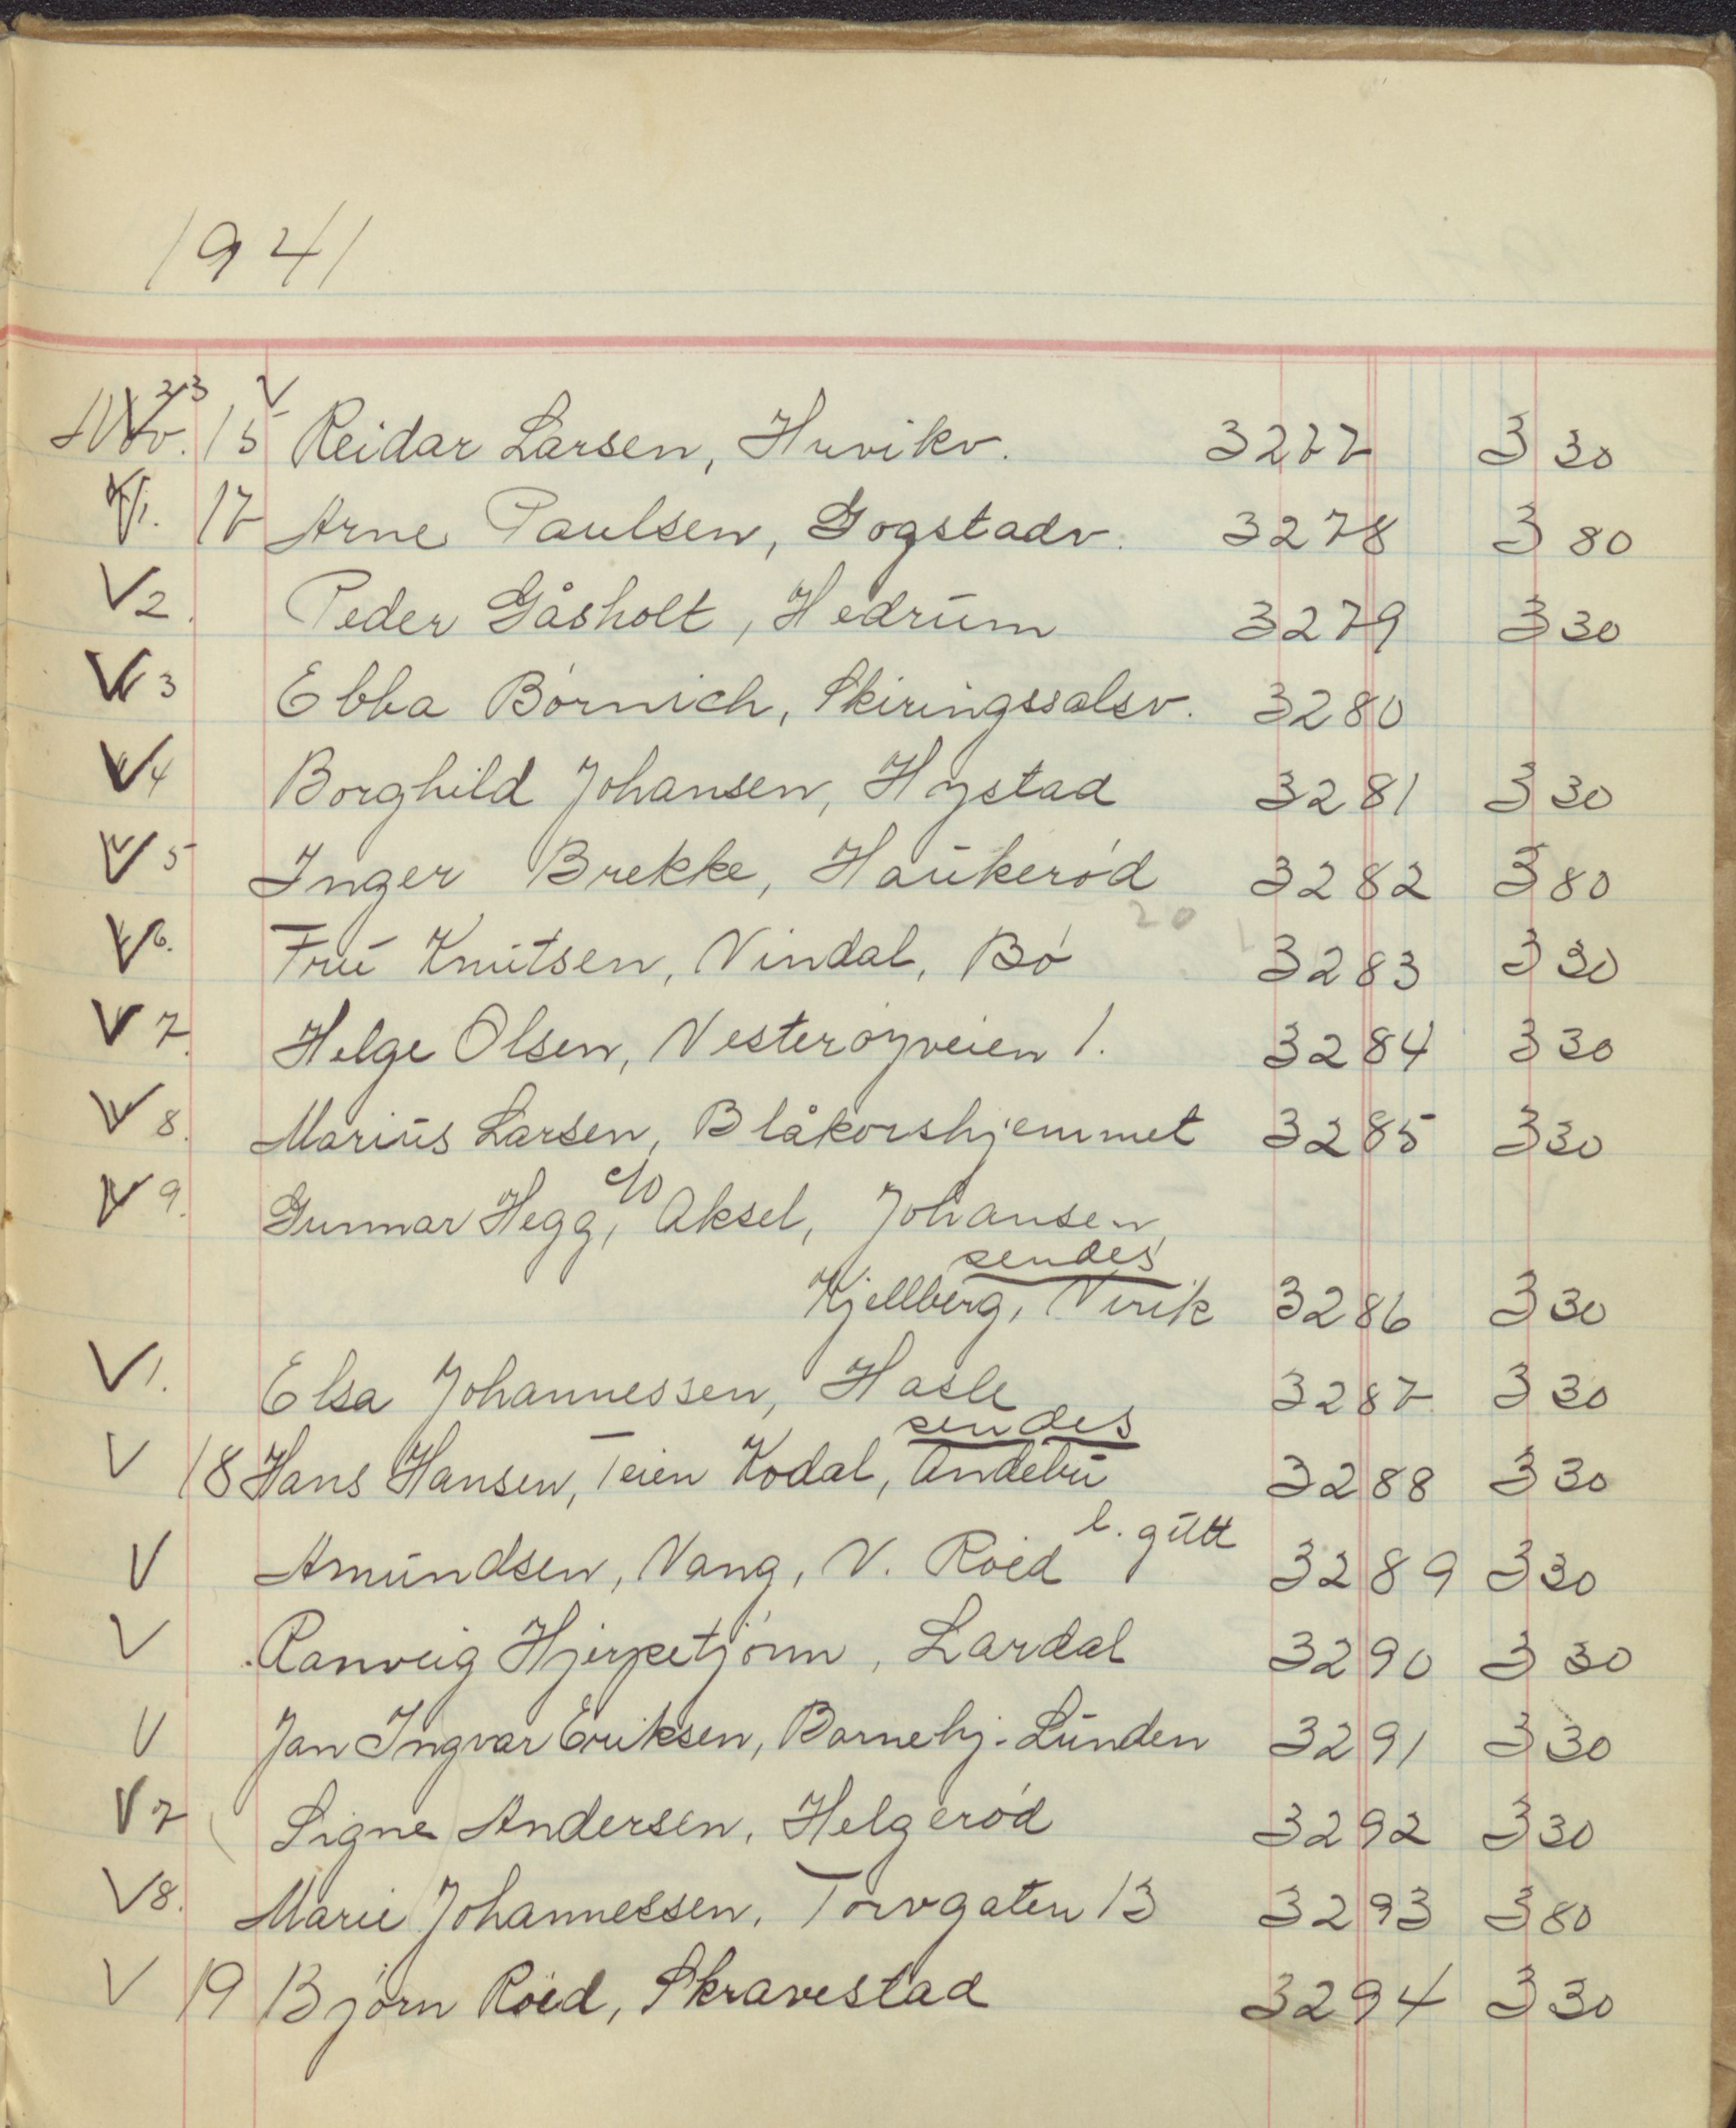 1941
Nov. 15 V Reidar Larsen, Huvikv. 3277 3 30
V 1. 17 Arne Paulsen, Gogstadv. 3278 3 80
V 2. Peder Gåsholt, Hedrum 3279 3 30
V 3 Ebba Börnich, Skiringssalsv. 3280
V 4 Borghild Johansen, Hystad 3281 3 30
V 5 Inger Brekke, Haukeröd 3282 3 80
20
V 6. Fru Knutsen, Vindal, Bö 3283 3 30
V 7. Helge Olsen, Vesteröyveien 1. 3284 3 30
V 8. Marius Larsen, Blåkorshjemmet 3285 3 30
V 9. Gunnar Hegg, c/o Aksel, Johansen,
sendes
Kjellberg, Virik 3286 3 30
V 1. Elsa Johannessen, Hasle 3287 3 30
sendes
V 18 Hans Hansen, Teien Kodal, Andebu 3288 3 30
V Amundsen, Vang, V. Röed l. gutt 3289 3 30
V Ranveig Hjerpetjönn, Lardal 3290 3 30
V Jan Ingvar Eriksen, Barnehj. Lunden 3291 3 30
V 7 Signe Andersen, Helgeröd 3292 3 30
V 8. Marie Johannessen, Torvgaten 13 3293 3 80
V 19 Björn Röed, Skravestad 3294 3 30